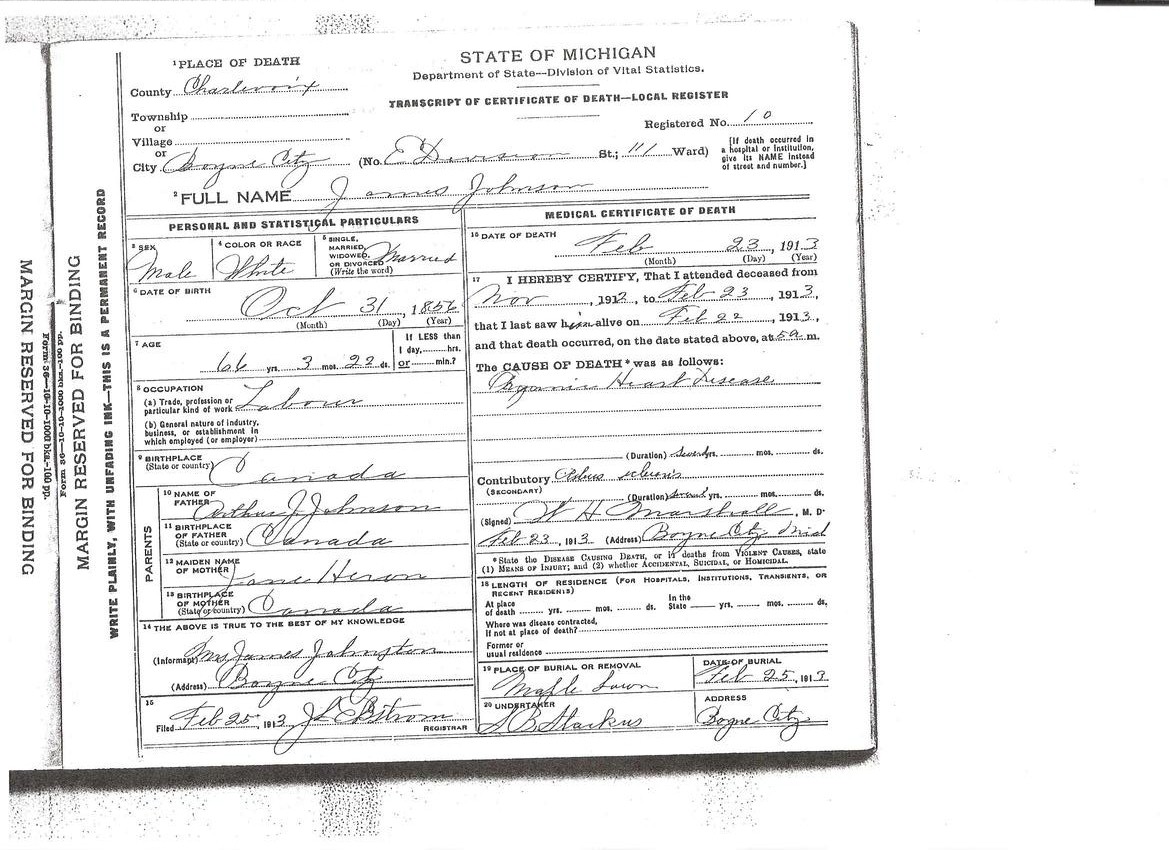 MARGIN RESERVED FOR BINDING
Form 36—10-10-1000 bks.-100 pp.
MARGIN RESERVED FOR BINDING
Form 36—10-10-1000 bks.-100 pp.
WRITE PLAINLY, WITH UNFADING INK—THIS IS A PERMANENT RECORD
1 PLACE OF DEATH
STATE OF MICHIGAN
Department of State—Division of Vital Statistics.
County Charlevoix
TRANSCRIPT OF CERTIFICATE OF DEATH—LOCAL REGISTER
Township
or
Village
or
City Boyne City (No. E Division St.; 111 Ward)
Registered No. 10
[If death occurred in a hospital or institution, give its NAME instead of street and number.]
2 FULL NAME James Johnson
PERSONAL AND STATISTICAL PARTICULARS
3 SEX Male
4 COLOR OR RACE White
5 SINGLE, MARRIED, WIDOWED, OR DIVORCED (Write the word) Married
6 DATE OF BIRTH
Oct 31, 1856
(Month) (Day) (Year)
7 AGE
66 yrs. 3 mos. 22 ds.
If LESS than 1 day, hrs. or min.?
8 OCCUPATION
(a) Trade, profession or particular kind of work Labour
(b) General nature of industry, business, or establishment in which employed (or employer)
9 BIRTHPLACE (State or country) Canada
PARENTS
10 NAME OF FATHER Arthur J Johnson
11 BIRTHPLACE OF FATHER (State or country) Canada
12 MAIDEN NAME OF MOTHER Jane Heron
13 BIRTHPLACE OF MOTHER (State or country) Canada
14 THE ABOVE IS TRUE TO THE BEST OF MY KNOWLEDGE
(Informant) Mrs James Johnston
(Address) Boyne City
15
Filed Feb 25, 1913
REGISTRAR
MEDICAL CERTIFICATE OF DEATH
16 DATE OF DEATH
Feb 23, 1913
(Month) (Day) (Year)
17 I HEREBY CERTIFY, That I attended deceased from
Nov, 1912, to Feb 23, 1913,
that I last saw him alive on Feb 22, 1913,
and that death occurred, on the date stated above, at 5 a m.
The CAUSE OF DEATH* was as follows:
Heart Disease
(Duration) yrs. mos. ds.
Contributory
(SECONDARY)
(Duration) yrs. mos. ds.
(Signed) W H Marshall, M. D.
Feb 23, 1913 (Address) Boyne City Mich
*State the DISEASE CAUSING DEATH, or in deaths from VIOLENT CAUSES, state
(1) MEANS OF INJURY; and (2) whether ACCIDENTAL, SUICIDAL, or HOMICIDAL.
18 LENGTH OF RESIDENCE (FOR HOSPITALS, INSTITUTIONS, TRANSIENTS, OR RECENT RESIDENTS)
At place of death yrs. mos. ds. In the State yrs. mos. ds.
Where was disease contracted, if not at place of death?
Former or usual residence
19 PLACE OF BURIAL OR REMOVAL
Maple Lawn
DATE OF BURIAL
Feb 25, 1913
20 UNDERTAKER
S B Starkus
ADDRESS
Boyne City